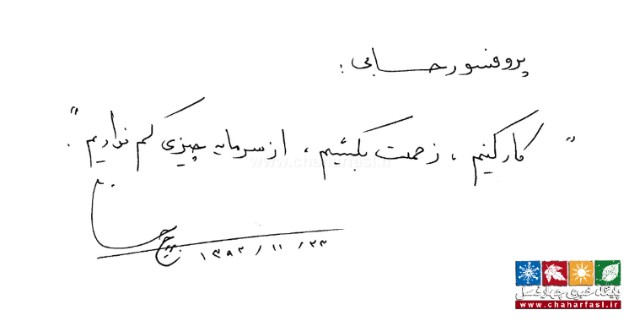 پروفسور حسابی :
" کار کنیم ، زحمت بکشیم ، از سرمایه چیزی کم نداریم " .
۱۳۸۲/۱۱/۲۳
www.chaharfasl.ir
www.chaharfasl.ir